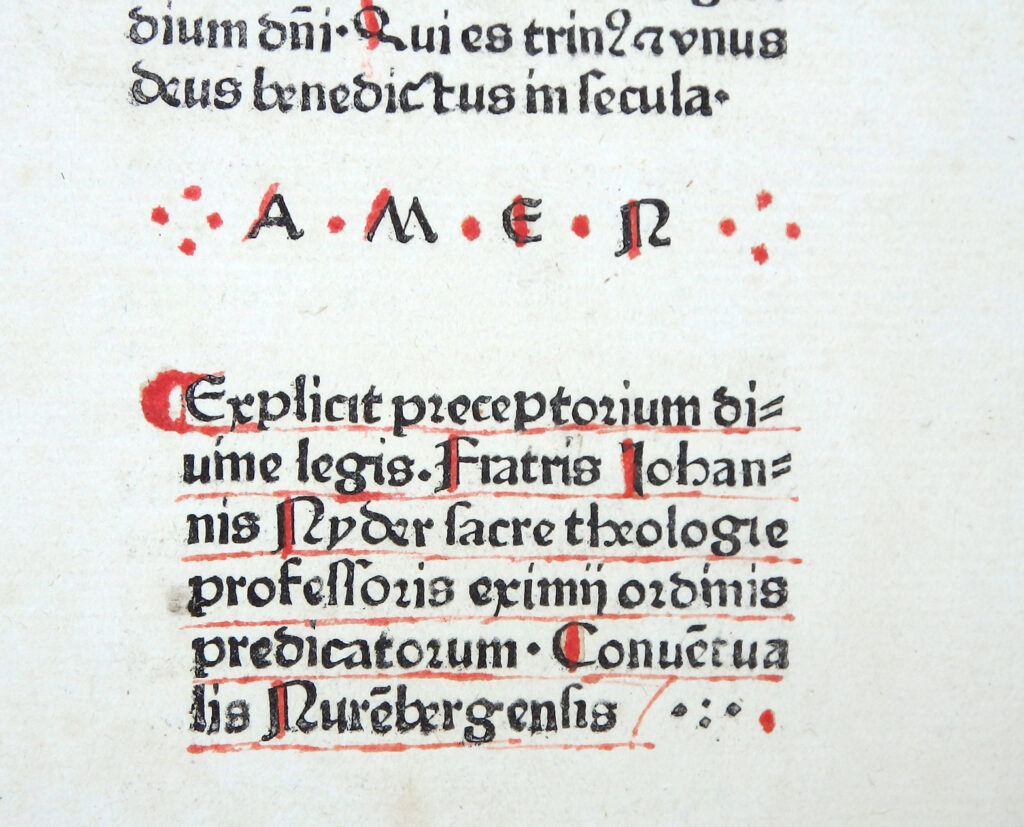 dium dñi. Qui es trinꝰ ⁊ vnus
deus benedictus in secula.
A . M . E . N
Explicit preceptorium di⸗
uine legis. Fratris Johan⸗
nis Nyder sacre theologie
professoris eximij ordinis
predicatorum . Conuētua
lis Nurēbergensis